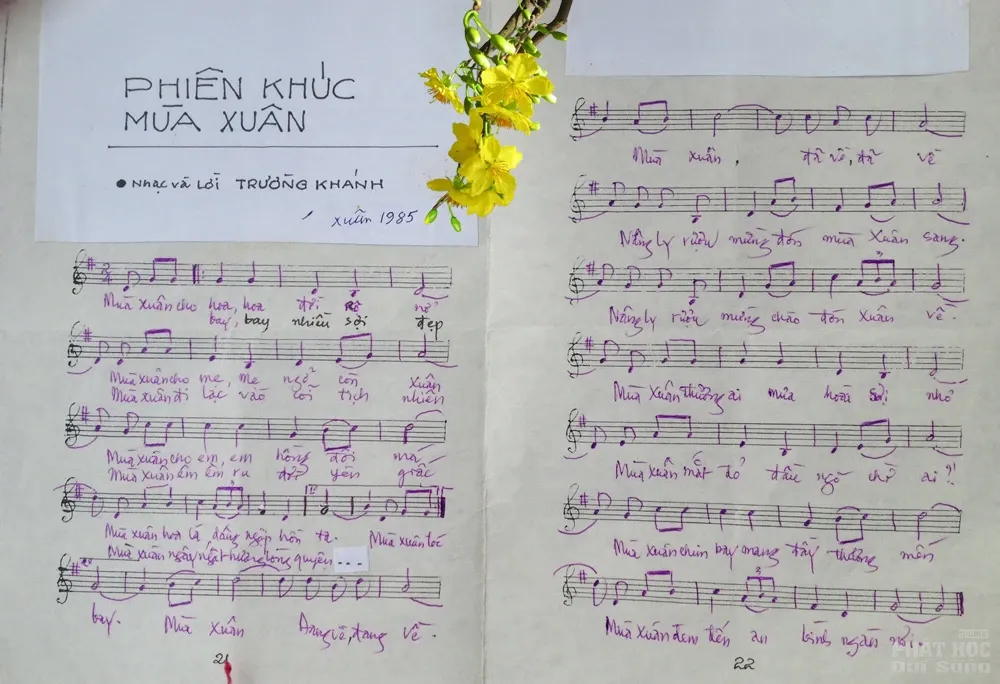 PHIÊN KHÚC
MÙA XUÂN
● Nhạc và Lời TRƯƠNG KHÁNH
xuân 1985
Mùa xuân cho hoa, hoa đời nở
bay, bay nhiều sợi đẹp
Mùa xuân cho mẹ, mẹ ngỡ còn xuân
Mùa xuân đi lạc vào cõi tịch nhiên
Mùa xuân cho em, em hồng đôi má
Mùa xuân êm êm ru đời yên giấc
Mùa xuân hoa lá, dâng ngập hồn ta. Mùa xuân tóc
Mùa xuân ngây ngất hương lòng quyện ...
bay. Mùa Xuân Đang về, đang về.
21
Mùa xuân, đã về, đã về
Nâng ly rượu mừng đón mùa Xuân sang.
Nâng ly rượu mừng chào đón Xuân về.
Mùa Xuân thương ai mùa hoa nhỏ
Mùa Xuân mắt đỏ đầu ngõ chờ ai?!
Mùa xuân chim bay mang đầy thương mến
Mùa Xuân đem đến an bình ngàn nơi.
22
PHẬT HỌC
Đời Sống